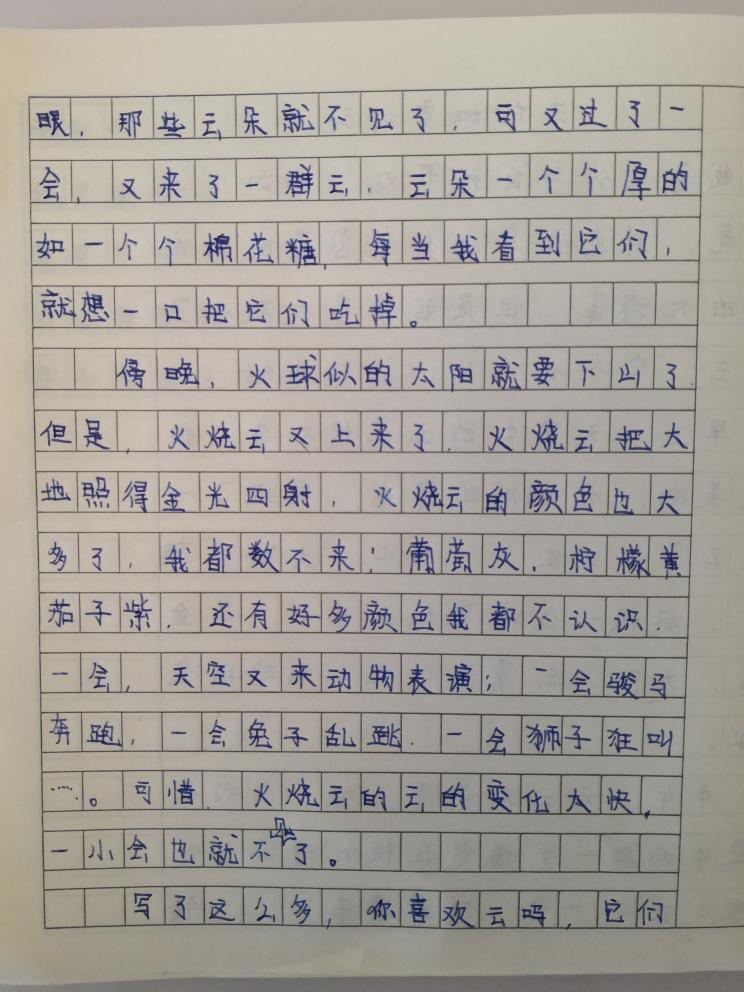 眼，那些云朵就不见了，可又过了一
会，又来了一群云，云朵一个个厚的
如一个个棉花糖，每当我看到它们，
就想一口把它们吃掉。
傍晚，火球似的太阳就要下山了.
但是，火烧云又上来了，火烧云把大
地照得金光四射，火烧云的颜色也大
多了，我都数不来；葡萄灰，柠檬黄
茄子紫，还有好多颜色我都不认识.
一会，天空又来动物表演；一会骏马
奔跑，一会兔子乱跳.一会狮子狂叫
……。可惜，火烧云的云的变化太快，
一小会也就不了。
写了这么多，你喜欢云吗，它们